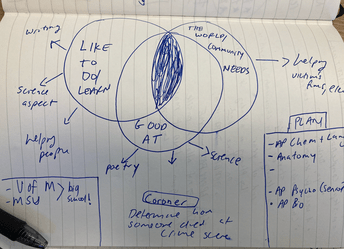 writing
LIKE
TO
DO/
LEARN
THE
WORLD/
Community
NEEDS
Science
aspect
helping
people
helping
victims
GOOD
AT
poetry
Science
- U of M > big
- MSU school!
Coroner
Determine how
someone died at
crime scene
PLAN
- AP Chem + Lang
- Anatomy
-
- AP Psycho (senior
- AP Bio